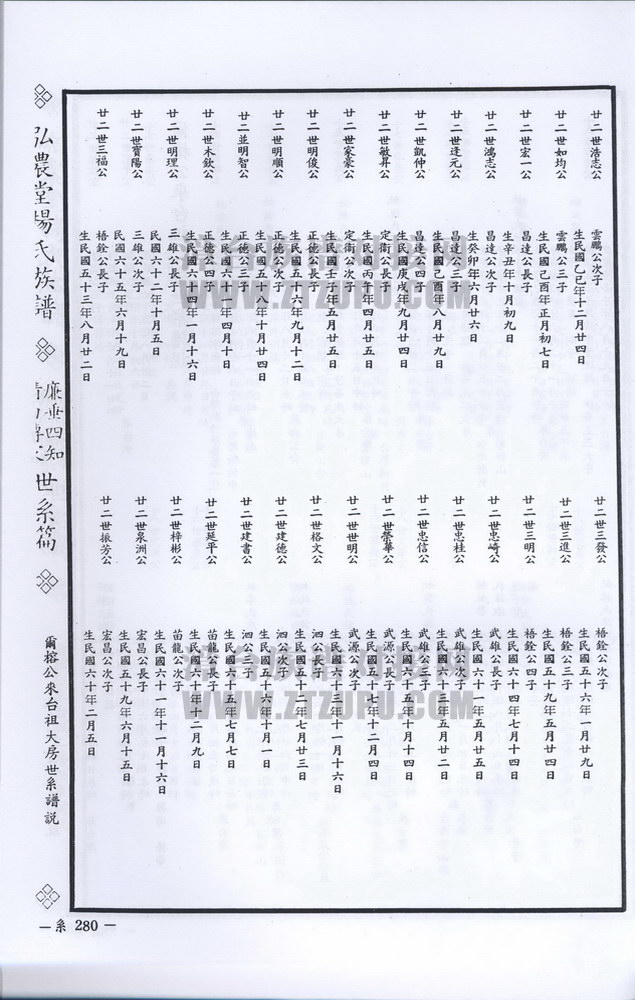 廿二世浩志公
雲鵬公次子
生民國乙巳年十二月廿四日
廿二世如均公
雲鵬公三子
生民國己酉年正月初七日
廿二世宏一公
昌達公長子
生辛丑年十月初九日
廿二世鴻志公
昌達公次子
生癸卯年六月廿六日
廿二世逢元公
昌達公三子
生民國己酉年八月廿九日
廿二世凱仲公
昌達公四子
生民國庚戌年九月廿四日
廿二世敏昇公
定衛公長子
生民國丙午年四月廿五日
廿二世家豪公
定衛公次子
生民國壬子年五月廿五日
廿二世明俊公
正德公長子
生民國五十六年九月十二日
廿二世明順公
正德公次子
生民國五十八年十月廿四日
廿二並明智公
正德公三子
生民國六十一年四月十日
廿二世木欽公
正德公四子
生民國六十四年一月十六日
廿二世明理公
三雄公長子
民國六十二年十月五日
廿二世寶陽公
三雄公次子
民國六十五年六月十九日
廿二世三福公
梧銓公長子
生民國五十三年八月廿二日
廿二世三發公
梧銓公次子
生民國五十六年一月廿九日
廿二世三進公
梧銓公三子
生民國五十九年五月廿四日
廿二世三明公
梧銓公四子
生民國六十四年七月十四日
廿二世忠崎公
武雄公長子
生民國六十一年五月廿五日
廿二世忠桂公
武雄公次子
生民國六十三年五月廿二日
廿二世忠信公
武雄公三子
生民國六十五年六月十四日
廿二世榮華公
武源公長子
生民國五十七年十二月四日
廿二世世明公
武源公次子
生民國六十三年十一月十六日
廿二世格文公
泗公長子
生民國五十二年七月廿三日
廿二世建德公
泗公次子
生民國五十六年十月一日
廿二世建書公
泗公三子
生民國六十五年七月七日
廿二世延平公
苗龍公長子
生民國六十年十二月九日
廿二世梓彬公
苗龍公次子
生民國六十一年十一月十六日
廿二世泉洲公
宏昌公長子
生民國五十九年六月十五日
廿二世振芳公
宏昌公次子
生民國六十年二月五日
弘農堂楊氏族譜
廉垂四知
世系篇
爾榕公來台祖大房世系譜説
—系 280 —
WWW.ZTZUPU.COM
WWW.ZTZUPU.COM